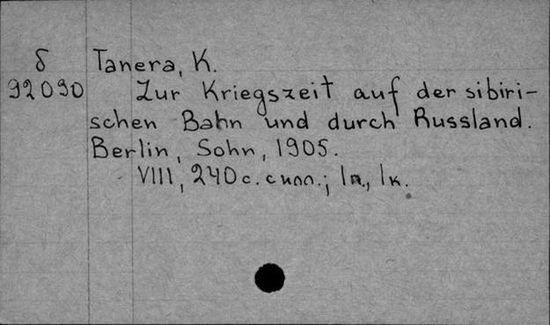 δ Tanera, K.
92030 Zur Kriegszeit auf der sibiri-
schen Bahn und durch Russland.
Berlin, Sohn, 1905.
VIII, 240 с. с илл.; 1 п., 1 к.